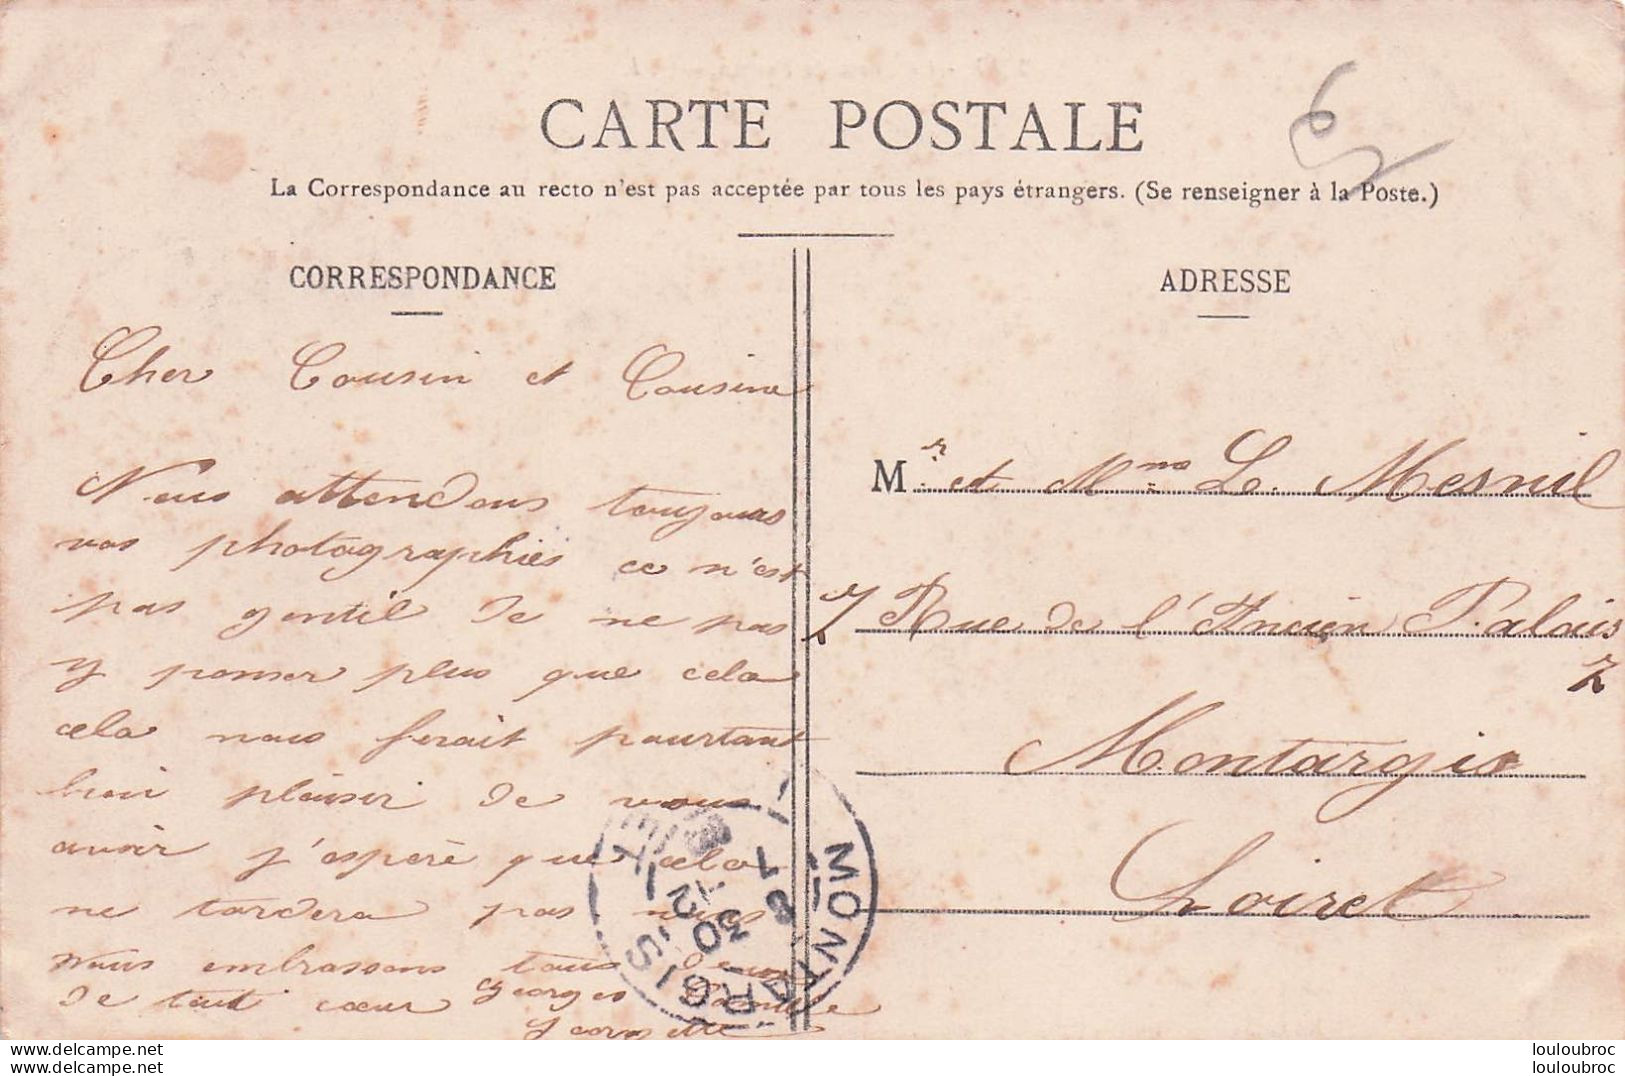 CARTE POSTALE
La Correspondance au recto n'est pas acceptée par tous les pays étrangers. (Se renseigner à la Poste.)
CORRESPONDANCE
Cher Cousin et Cousine
Nous attendons toujours
vos photographies ce n'est
pas gentil de ne pas
y penser plus que cela
cela nous ferait pourtant
bien plaisir de vous
avoir j'espere que cela
ne tardera pas nous
vous embrassons tous deux
de tout cœur Georges
Georgette
ADRESSE
Mr et Mme L. Mesnil
7 Rue de l'Ancien Palais
7
Montargis
Loiret
MONTARGIS
LOIRET
30
louloubroc
louloubroc
www.delcampe.net
www.delcampe.net